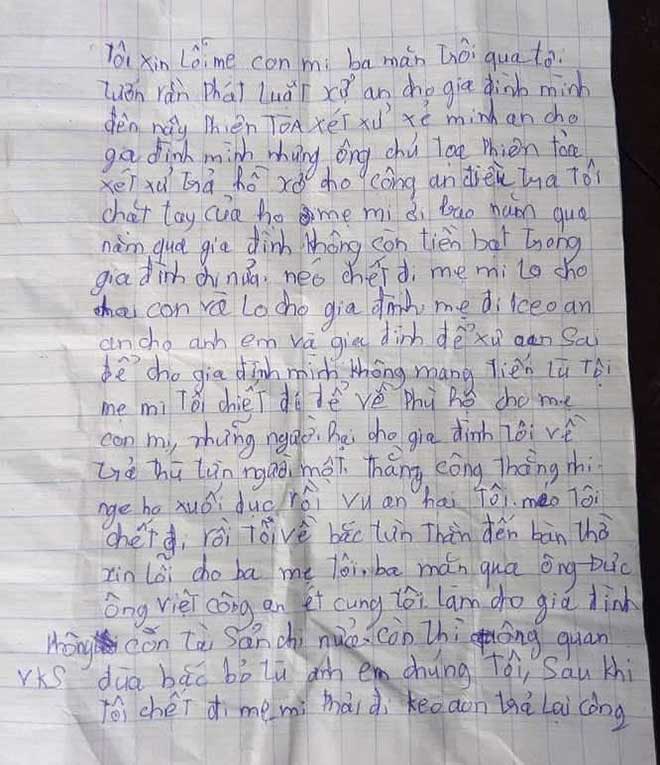 Tôi xin Lỗi me con mi ba mản trôi qua tô.
Luôn ràn Phát Luật xử an cho gia đình minh
đên nãy Phiên TOA xét xử xẻ minh an cho
gia đình minh nhưng ông chủ toa Phiên toa
xét xử trả hồ xơ cho công an điều tra Tôi
chăt tay của ho me mi đi bao năm qua
năm qua gia đình không còn tiên bạt trong
gia đình chi nửa. neó chết đi mẹ mi lo cho
hai con và Lo cho gia đình mẹ đi keo an
an cho anh em và gia đình để xử oan Sai
để cho gia đình minh không mang tiên tù Tội
me mi Tôi chiêt đi để về Phù hô cho me
con mi, nhưng ngaỏi hại cho gia đình Tôi về
trả thù từn ngaòi một. thăng công Thăng nhi
nge ho xuối dục rồi vu an hai Tôi. Tôi
chết đi rồi Tôi về băc từn Thàn đến bàn thờ
xin lỗi cho ba mẹ Tôi. ba mản qua ông Đưc
ông việt công an et cung tôi làm cho gia đình
không còn tài Sản chi nửa. còn thi ông quan
VKS đưa băc bỏ tù anh em chúng Tôi, Sau khi
Tôi chết đi mẹ mi Phải đi keo đơn trả Lai công